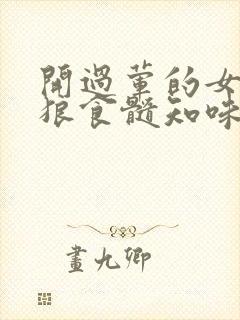 開過葷的女
狼食髓知味
畫九卿